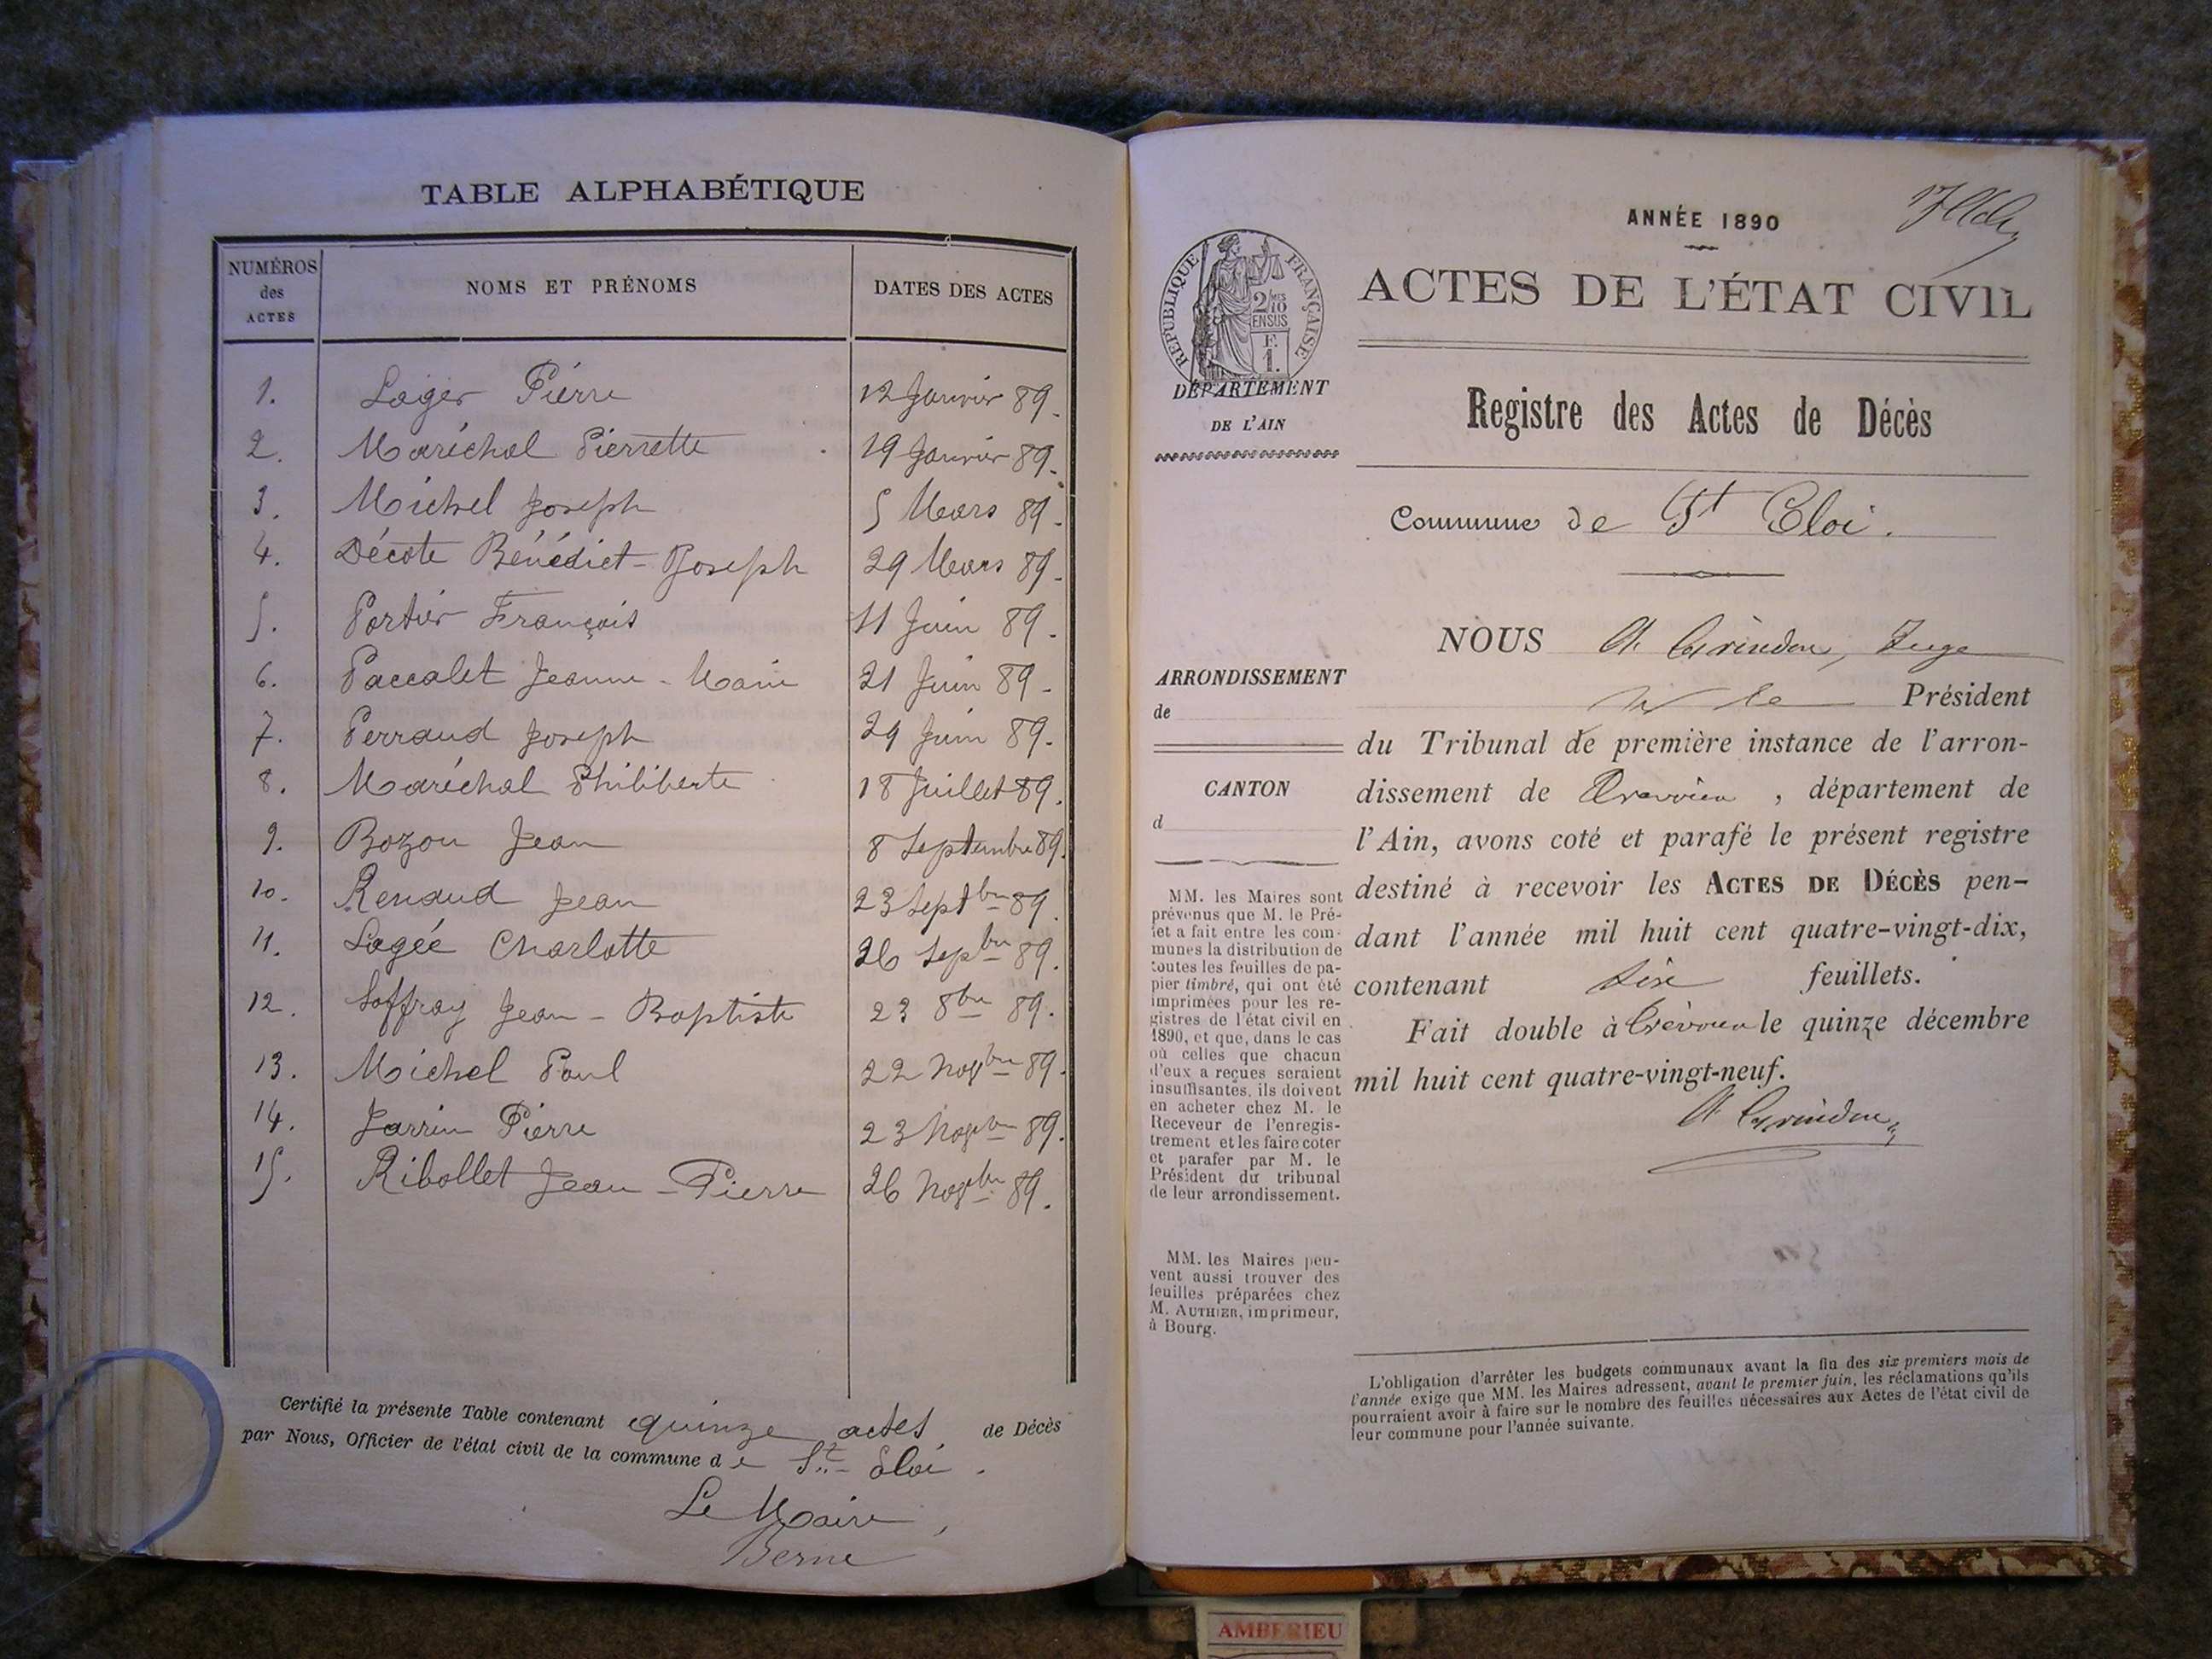 TABLE ALPHABÉTIQUE
NUMÉROS des ACTES NOMS ET PRÉNOMS DATES DES ACTES
1. Lager Pierre 12 Janvier 89.
2. Maréchal Pierrette 19 Janvier 89.
3. Michel Joseph 5 Mars 89.
4. Décote Bénédict-Joseph 29 Mars 89.
5. Portier François 11 Juin 89.
6. Paccalet Jeanne-Marie 21 Juin 89.
7. Perraud Joseph 29 Juin 89.
8. Maréchal Philiberte 18 Juillet 89.
9. Bozon Jean 8 Septembre 89.
10. Renaud Jean 23 Septbre 89.
11. Lagée Charlotte 26 Sepbre 89.
12. Soffray Jean-Baptiste 23 8bre 89.
13. Michel Paul 22 Novbre 89.
14. Jarrin Pierre 23 Novbre 89.
15. Ribollet Jean-Pierre 26 Novbre 89.
Certifié la présente Table contenant quinze actes de Décès
par Nous, Officier de l'état civil de la commune de St-Eloi.
Le Maire,
Berne
ANNÉE 1890
RÉPUBLIQUE FRANÇAISE
2/10 MES
EN SUS
F.
1.
ACTES DE L'ÉTAT CIVIL
DÉPARTEMENT
DE L'AIN
Registre des Actes de Décès
Commune de St Eloi.
ARRONDISSEMENT
de
CANTON
d
MM. les Maires sont
prévenus que M. le Pré-
fet a fait entre les com-
munes la distribution de
toutes les feuilles de pa-
pier timbré, qui ont été
imprimées pour les re-
gistres de l'état civil en
1890, et que, dans le cas
où celles que chacun
d'eux a reçues seraient
insuffisantes, ils doivent
en acheter chez M. le
Receveur de l'enregis-
trement et les faire coter
et parafer par M. le
Président du tribunal
de leur arrondissement.
MM. les Maires peu-
vent aussi trouver des
feuilles préparées chez
M. AUTHIER, imprimeur,
à Bourg.
NOUS A. Grindon, Juge
le Président
du Tribunal de première instance de l'arron-
dissement de Trévoux, département de
l'Ain, avons coté et parafé le présent registre
destiné à recevoir les ACTES DE DÉCÈS pen-
dant l'année mil huit cent quatre-vingt-dix,
contenant six feuillets.
Fait double à Trévoux le quinze décembre
mil huit cent quatre-vingt-neuf.
A. Grindon
L'obligation d'arrêter les budgets communaux avant la fin des six premiers mois de
l'année exige que MM. les Maires adressent, avant le premier juin, les réclamations qu'ils
pourraient avoir à faire sur le nombre des feuilles nécessaires aux Actes de l'état civil de
leur commune pour l'année suivante.
AMBERIEU